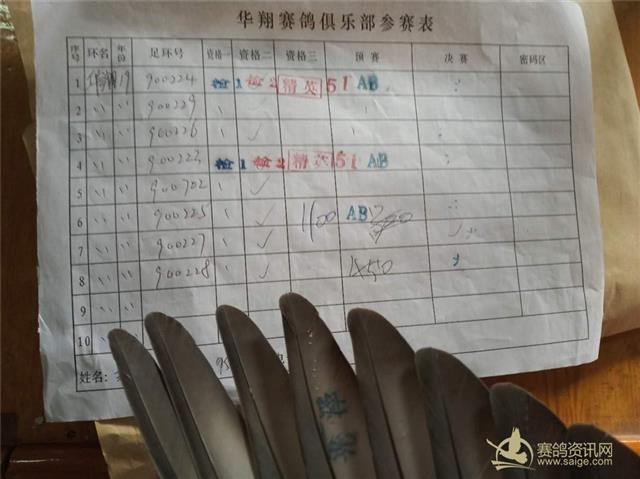 华翔赛鸽俱乐部参赛表
序号 环名 年份 足环号 资格一 资格二 资格三 预赛 决赛 密码区
1 华翔 19 900224 检1 检2 精英 51 AB
2 〃 〃 900229
3 〃 〃 900226
4 〃 〃 900223 检1 检2 精英 51 AB
5 〃 〃 900702
6 〃 〃 900225 1600 AB
7 〃 〃 900227
8 〃 〃 900228 1x50
9 〃 〃
10 〃 〃
姓名:
赛鸽资讯网
www.saige.com